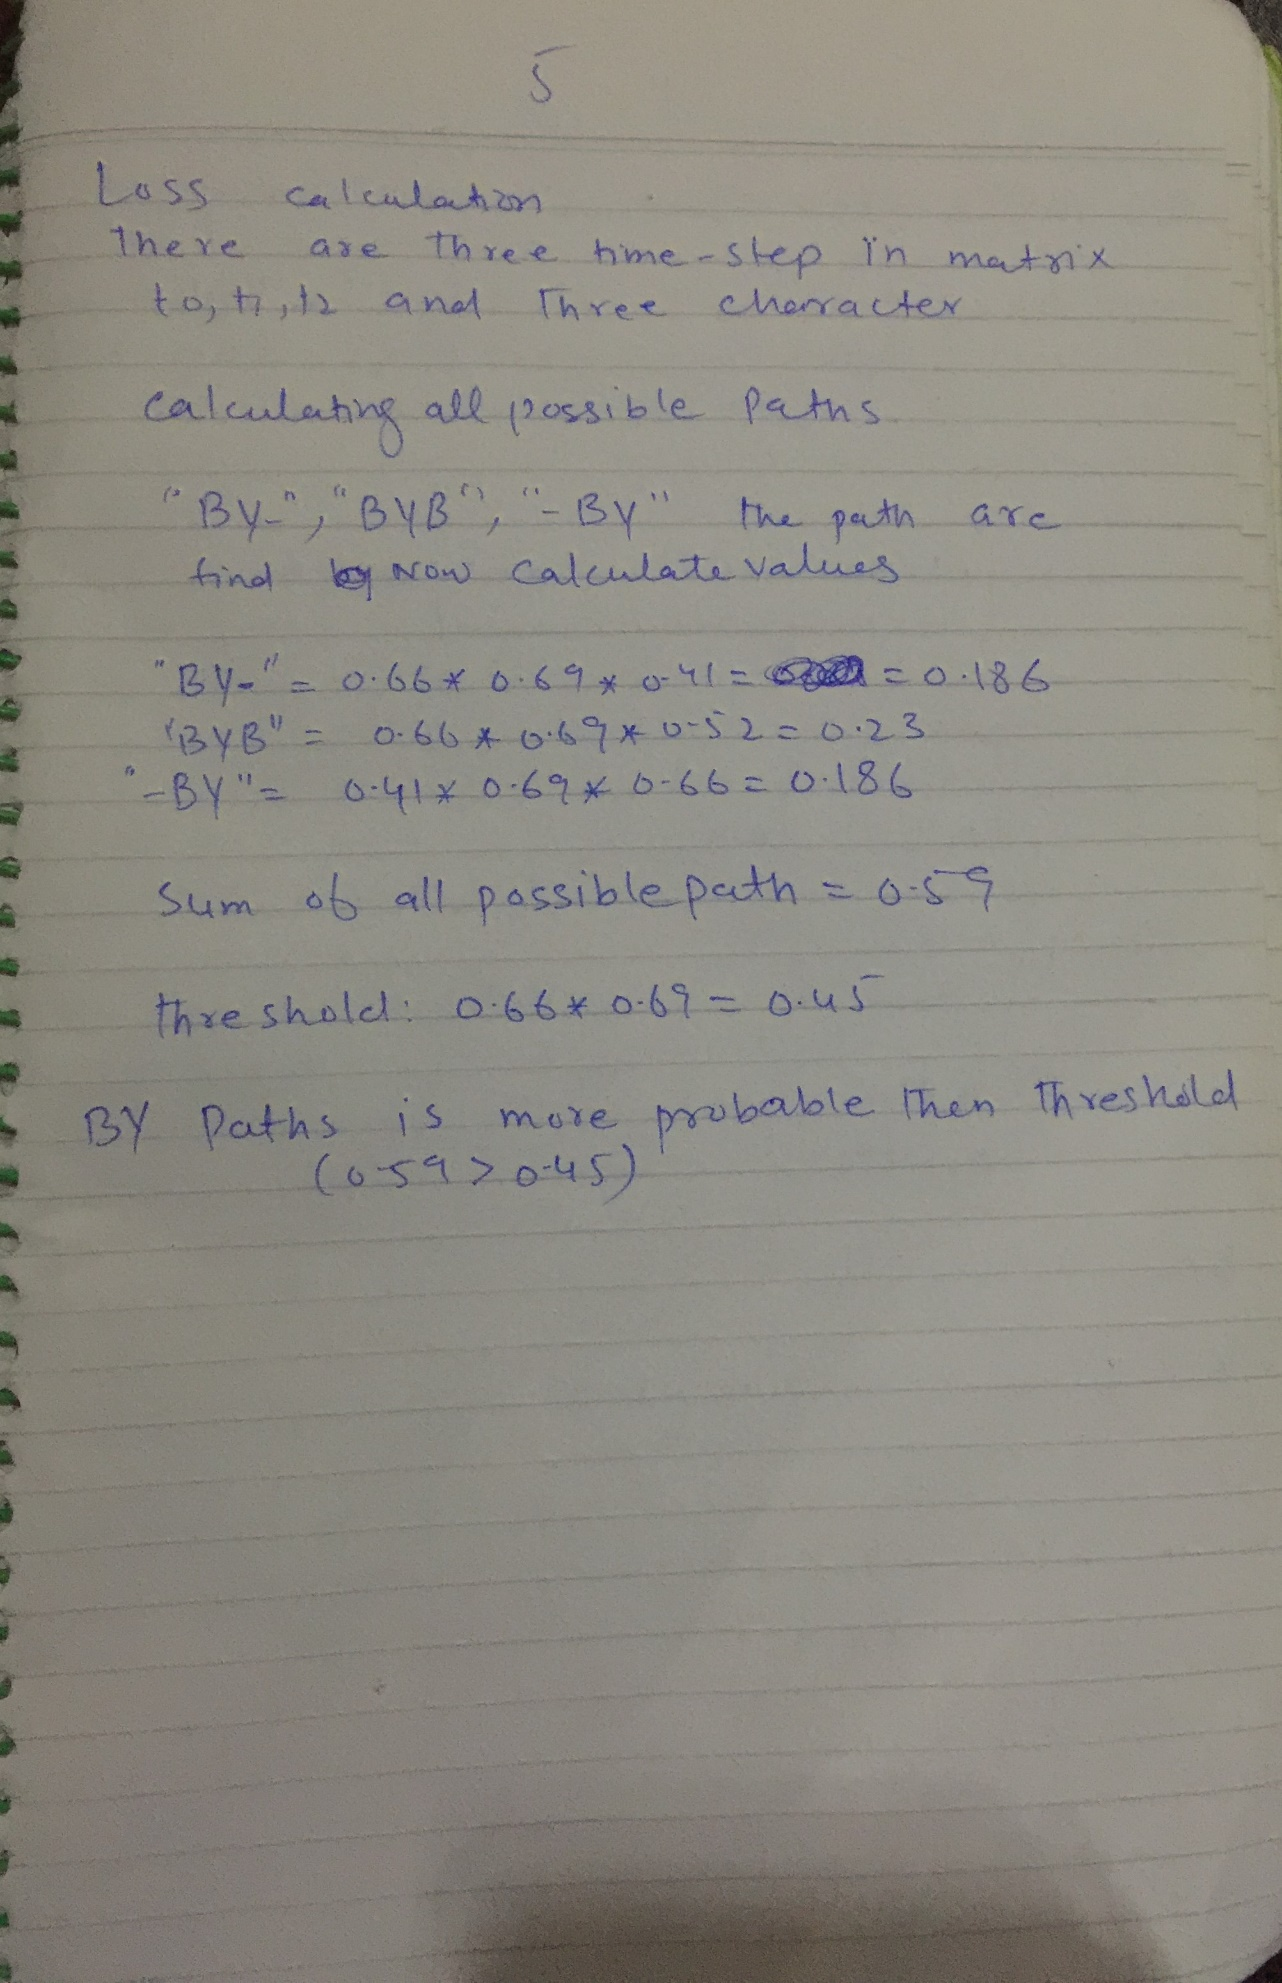 5
Loss calculation
There are three time-step in matrix
t0, t1, t2 and Three character
calculating all possible paths
"BY-", "BYB", "-BY" the path are
find by Now calculate values
"BY-" = 0.66 * 0.69 * 0.41 = = 0.186
"BYB" = 0.66 * 0.69 * 0.52 = 0.23
"-BY" = 0.41 * 0.69 * 0.66 = 0.186
Sum of all possible path = 0.59
threshold: 0.66 * 0.69 = 0.45
BY Paths is more probable then Threshold
(0.59 > 0.45)